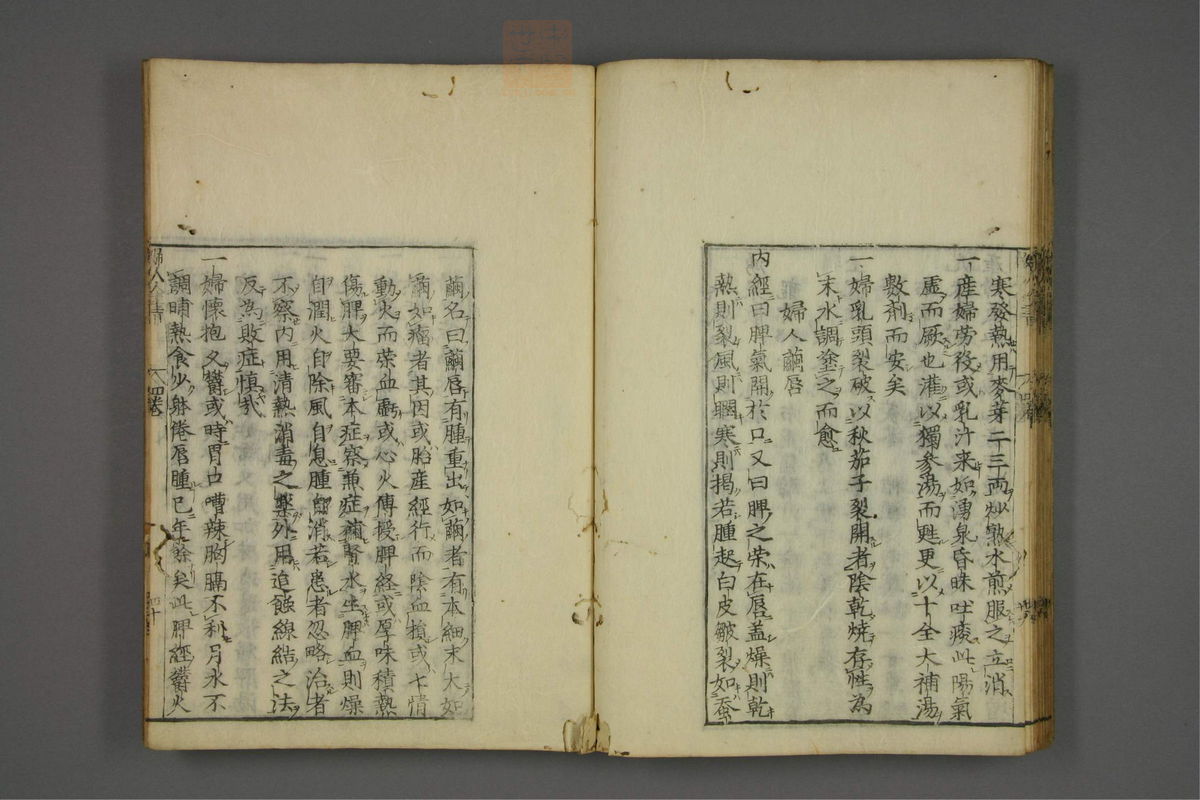 寒發熱用麥芽二三両炒熟水煎服之立消
一産婦劳役或乳汁来如湧泉昏昧吐痰此陽氣
虚而厥也灌以獨參湯而甦更以十全大補湯
数剤而安矣
一婦乳頭裂破以秋茄子裂開者陰乾燒存性為
末水調塗之而愈
婦人繭唇
内經曰脾氣開於口又曰脾之荣在唇盖燥則乾
熱則裂風則瞤寒則揭若腫起白皮皺裂如蚕
繭名曰繭唇有腫重出如繭者有本細末大如
繭如瘤者其因或胎産經行而陰血損或七情
動火而荣血虧或心火傳授脾経或厚味積熱
傷脾大要審本症察兼症補腎水生脾血則燥
自潤火自除風自息腫自消若患者忽略治者
不察内用清熱消毒之藥外用追蝕線結之法
反為敗症慎哉
一婦懷抱久欝或時胃口嘈辣胸膈不利月水不
調晡熱食少躰倦唇腫已年餘矣此脾經欝火
四卷
四十